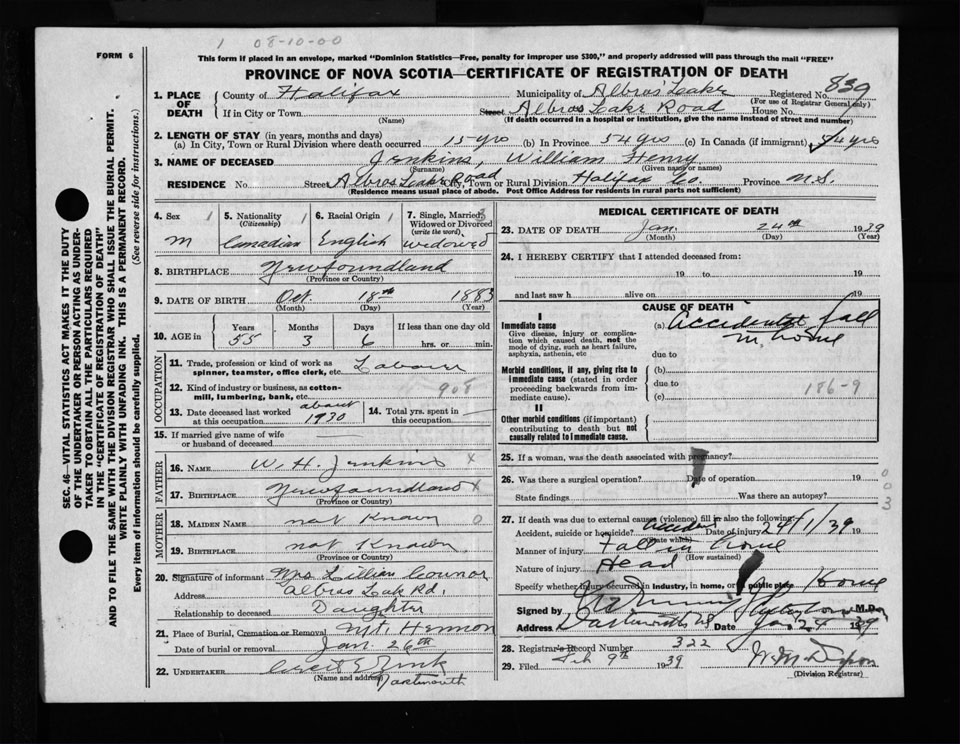 1 08-10-00
FORM 6
This form if placed in an envelope, marked "Dominion Statistics—Free, penalty for improper use $300," and properly addressed will pass through the mail "FREE"
PROVINCE OF NOVA SCOTIA—CERTIFICATE OF REGISTRATION OF DEATH
1. PLACE OF DEATH County of Halifax Municipality of Albros' Lake Registered No. 839
(For use of Registrar General only)
If in City or Town Street Albros Lake Road House No.
(Name) (If death occurred in a hospital or institution, give the name instead of street and number)
2. LENGTH OF STAY (in years, months and days)
(a) In City, Town or Rural Division where death occurred 15 yrs (b) In Province 54 yrs (c) In Canada (if immigrant) 54 yrs
3. NAME OF DECEASED Jenkins, William Henry
(Surname) (Given name or names)
RESIDENCE No. Street Albros Lake Road City, Town or Rural Division Halifax Co. Province N.S.
(Residence means usual place of abode. Post Office Address for residents in rural parts not sufficient)
4. Sex 1 M
5. Nationality 1 (Citizenship) Canadian
6. Racial Origin 1 English
7. Single, Married, Widowed or Divorced (write the word) 3 widowed
8. BIRTHPLACE Newfoundland
(Province or Country)
9. DATE OF BIRTH Oct. 18th 1883
(Month) (Day) (Year)
10. AGE in Years 55 Months 3 Days 6 If less than one day old hrs. or min.
OCCUPATION
11. Trade, profession or kind of work as spinner, teamster, office clerk, etc. Labourer
12. Kind of industry or business, as cotton-mill, lumbering, bank, etc. 908
13. Date deceased last worked at this occupation about 1930
14. Total yrs. spent in this occupation
15. If married give name of wife or husband of deceased
FATHER
16. NAME W. H. Jenkins x
17. BIRTHPLACE Newfoundland x
(Province or Country)
MOTHER
18. MAIDEN NAME not Known 0
19. BIRTHPLACE not Known
(Province or Country)
20. Signature of informant Mrs Lillian Connor
Address Albros Lake Rd.
Relationship to deceased Daughter
21. Place of Burial, Cremation or Removal Mt. Hermon
Date of burial or removal Jan. 26th
22. UNDERTAKER
(Name and address) Dartmouth
MEDICAL CERTIFICATE OF DEATH
23. DATE OF DEATH Jan. 24th 1939
(Month) (Day) (Year)
24. I HEREBY CERTIFY that I attended deceased from:
19 to 19
and last saw h alive on 19
CAUSE OF DEATH
I
Immediate cause
Give disease, injury or complication which caused death, not the mode of dying, such as heart failure, asphyxia, asthenia, etc
(a) accidental fall
in home
due to
Morbid conditions, if any, giving rise to immediate cause (stated in order proceeding backwards from immediate cause).
(b)
due to 186-9
(c)
II
Other morbid conditions (if important) contributing to death but not causally related to immediate cause.
25. If a woman, was the death associated with pregnancy?
26. Was there a surgical operation? Date of operation 19
State findings Was there an autopsy?
0
0
3
27. If death was due to external causes (violence) fill in also the following:
Accident, suicide or homicide? Accident Date of injury 24/1/39
(State which)
Manner of injury Fall in home
(How sustained)
Nature of injury Head
Specify whether injury occurred in industry, in home, or in public place Home
Signed by M.D.
Address Dartmouth NS Date Jan 24 1939
28. Registrar's Record Number 322
29. Filed Feb 9th 1939
(Division Registrar)
SEC. 46—VITAL STATISTICS ACT MAKES IT THE DUTY
OF THE UNDERTAKER OR PERSON ACTING AS UNDER-
TAKER TO OBTAIN ALL THE PARTICULARS REQUIRED
IN THE "CERTIFICATE OF REGISTRATION OF DEATH"
AND TO FILE THE SAME WITH THE DIVISION REGISTRAR WHO SHALL ISSUE THE BURIAL PERMIT.
WRITE PLAINLY WITH UNFADING INK. THIS IS A PERMANENT RECORD.
Every item of information should be carefully supplied. (See reverse side for instructions.)